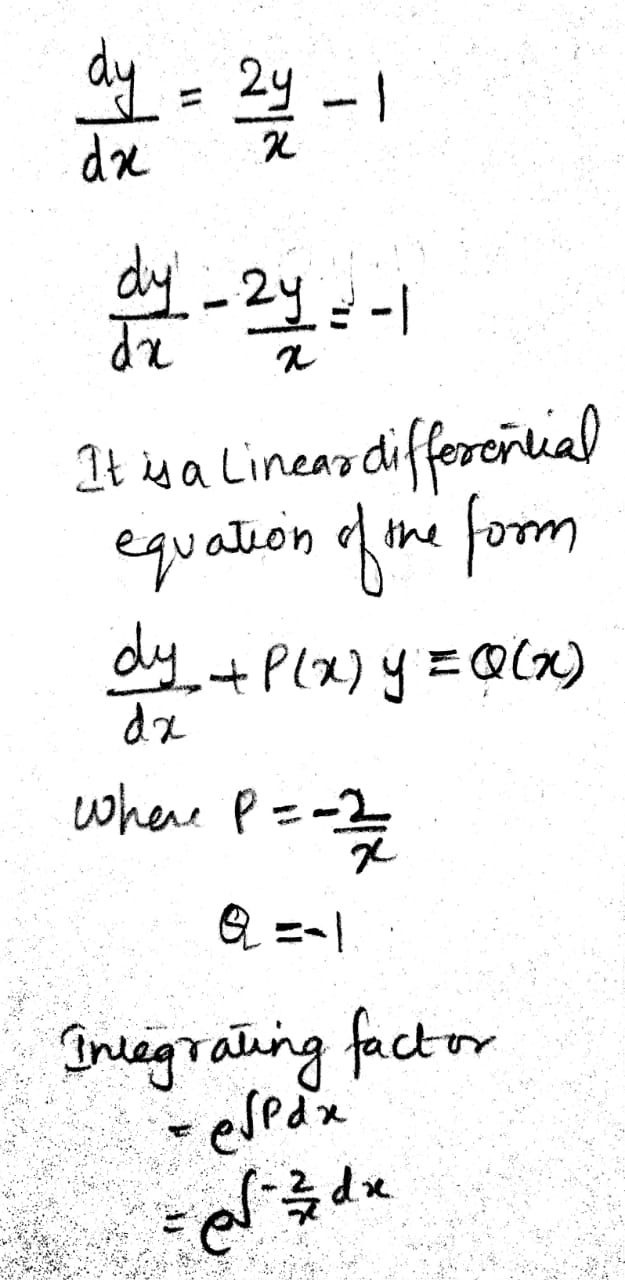 dy/dx = 2y/x - 1
dy/dx - 2y/x = -1
It is a Linear differential
equation of the form
dy/dx + P(x) y = Q(x)
where P = -2/x
Q = -1
Integrating factor
= e^∫Pdx
= e^∫-2/x dx